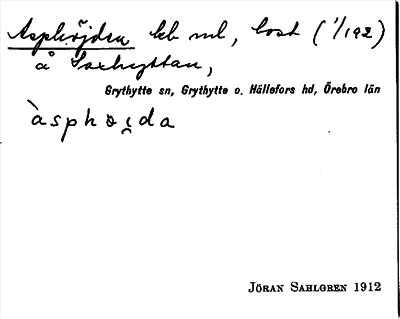 Asphöjden lb ml, bost (1/192)
å Saxhyttan,
Grythytte sn, Grythytte o. Hällefors hd, Örebro län
àsphɵi̯da
JÖRAN SAHLGREN 1912